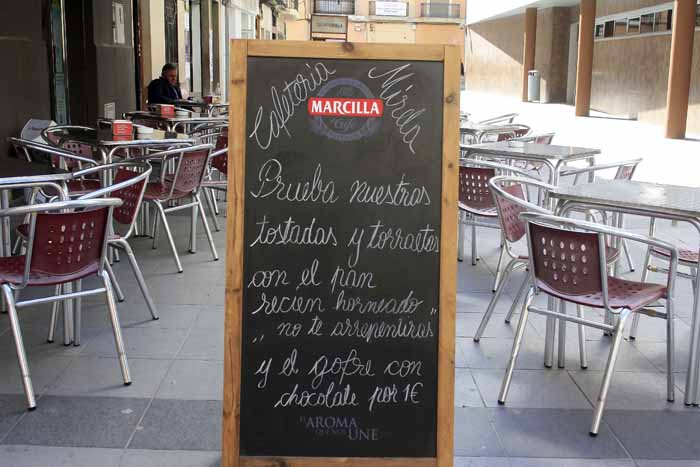 Cafetería Mérida
MARCILLA
Café
Prueba nuestras
tostadas y torraetes
con el pan
recien horneado
"no te arrepentiras"
y el gofre con
chocolate por 1€
EL AROMA
QUE NOS UNE